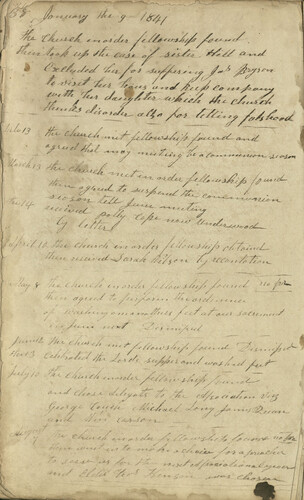 January the 9 1841
The Church in order fellowship found
then took up the case of sister Hall and
Excluded her for supposing Jas Bryson
to visit her house and keep company
with her daughter which the church
thinks disorder also for telling falshood
Feb 13 the church met fellowship found and
agreed that may meeting be a communion season
March 13 the church met in order fellowship found
then agreed to suspend the communion
season till June meeting
received polly Cope now Underwood
by letter
April 11 the church in order fellowship obtained
then received Sarah Wilson by recantation
May 8 the church in order fellowship found
then agreed to perform the ordinence
of washing one anothers feet at our sacrament
in June next Dismised
June 12 the church met fellowship found Dismised
the 13 celebrated the Lords supper and washed feet
July 10 the church in order fellowship found
and chose deligats to the Association viz
George Couch Michael Long John
and carson
the church in order fellowship
then went in to make a choice for a pastor
to serve us for the next associational year
and Elder was chosen